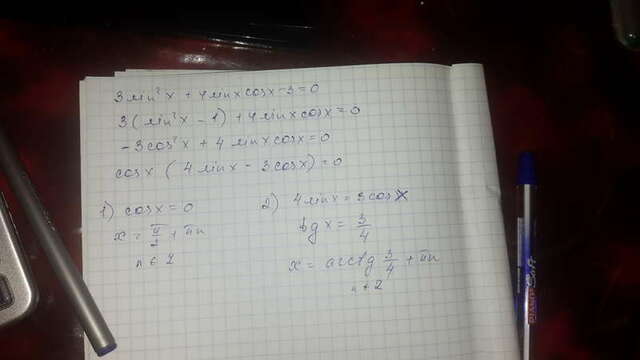 3 sin²x + 4 sinx cosx - 3 = 0
3 (sin²x - 1) + 4 sinx cosx = 0
-3 cos²x + 4 sinx cosx = 0
cosx (4 sinx - 3 cosx) = 0
1) cosx = 0
x = π/2 + πn
n ∈ Z
2) 4 sinx = 3 cosx
tg x = 3/4
x = arctg 3/4 + πn
n ∈ Z